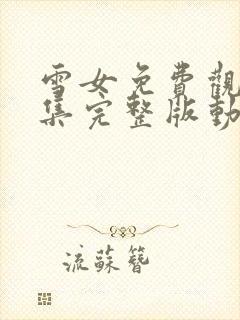 雪女免費觀
集完整版動
流蘇簪